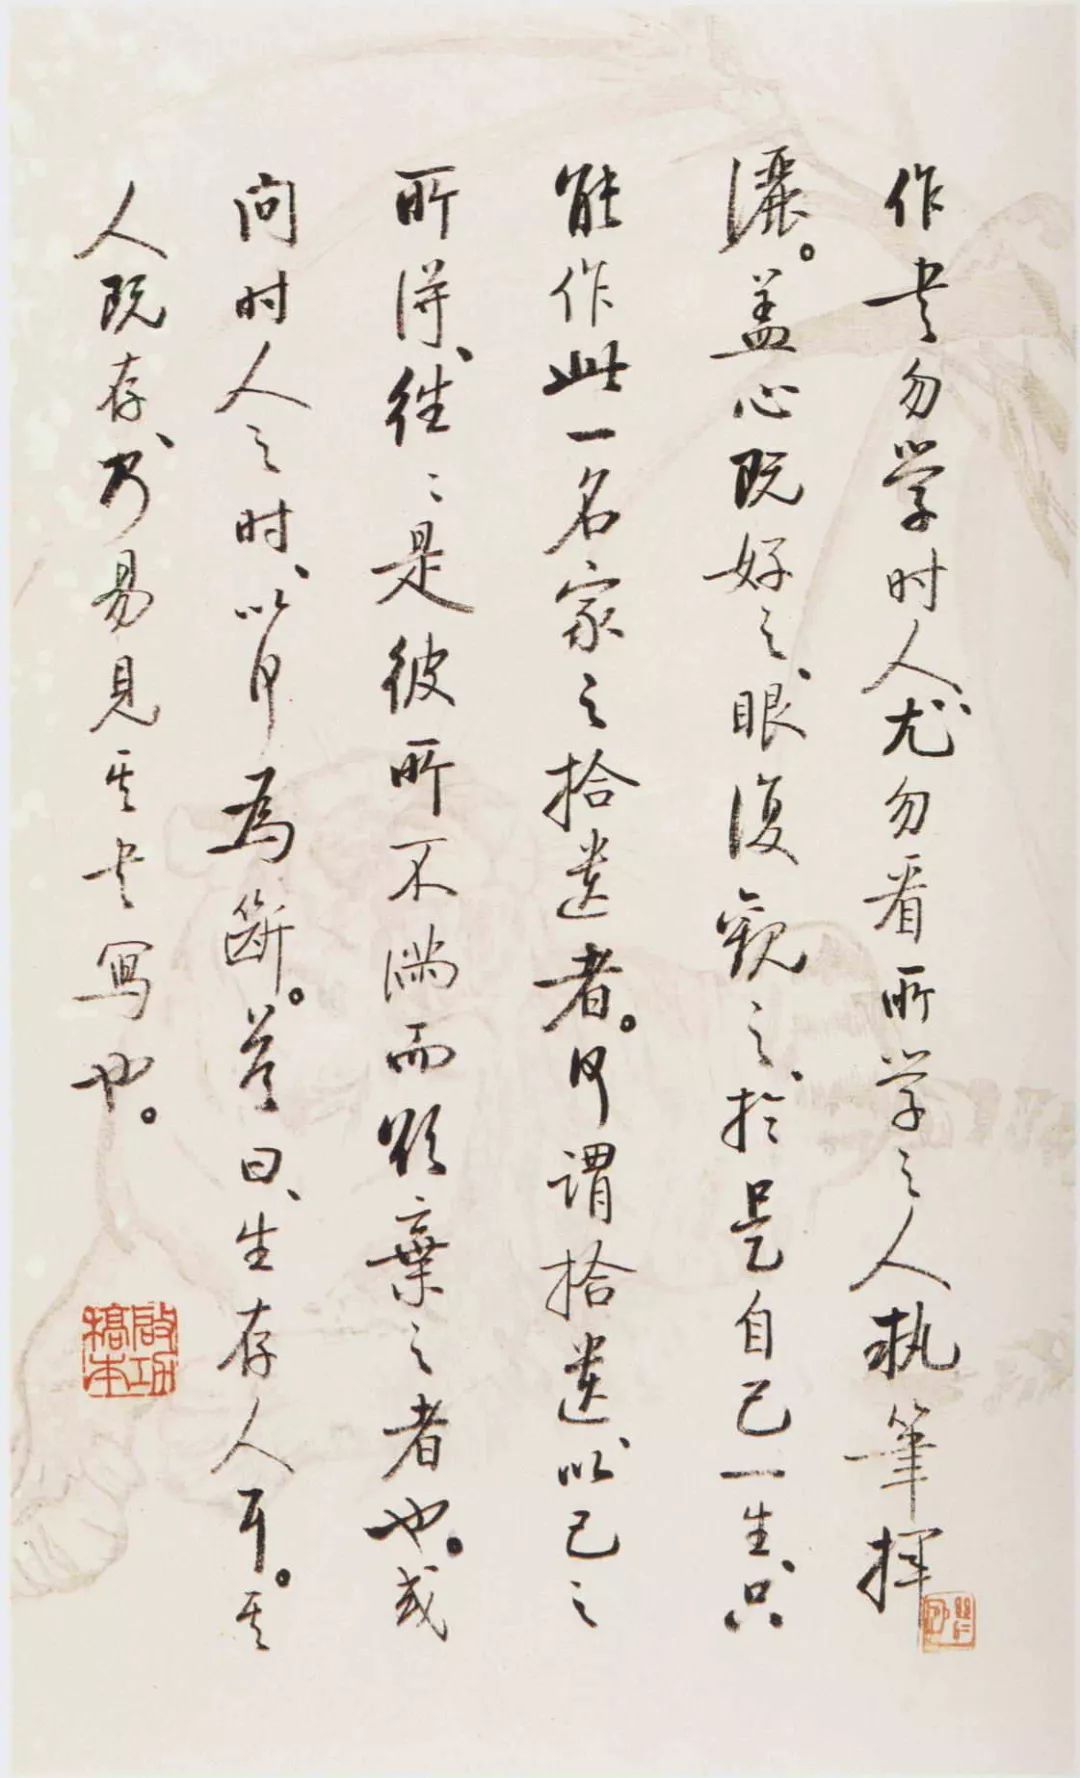 作書勿学时人、尤勿看所学之人执筆揮
灑。盖心既好之、眼復觀之、於是自己一生、只
能作此一名家之拾遗者。何謂拾遗、以己之
所得、往〻是彼所不满而欲棄之者也。或
问时人之时、以何為断。答曰、生存人耳。其
人既存、乃易見其书寫也。
啟功
稿本